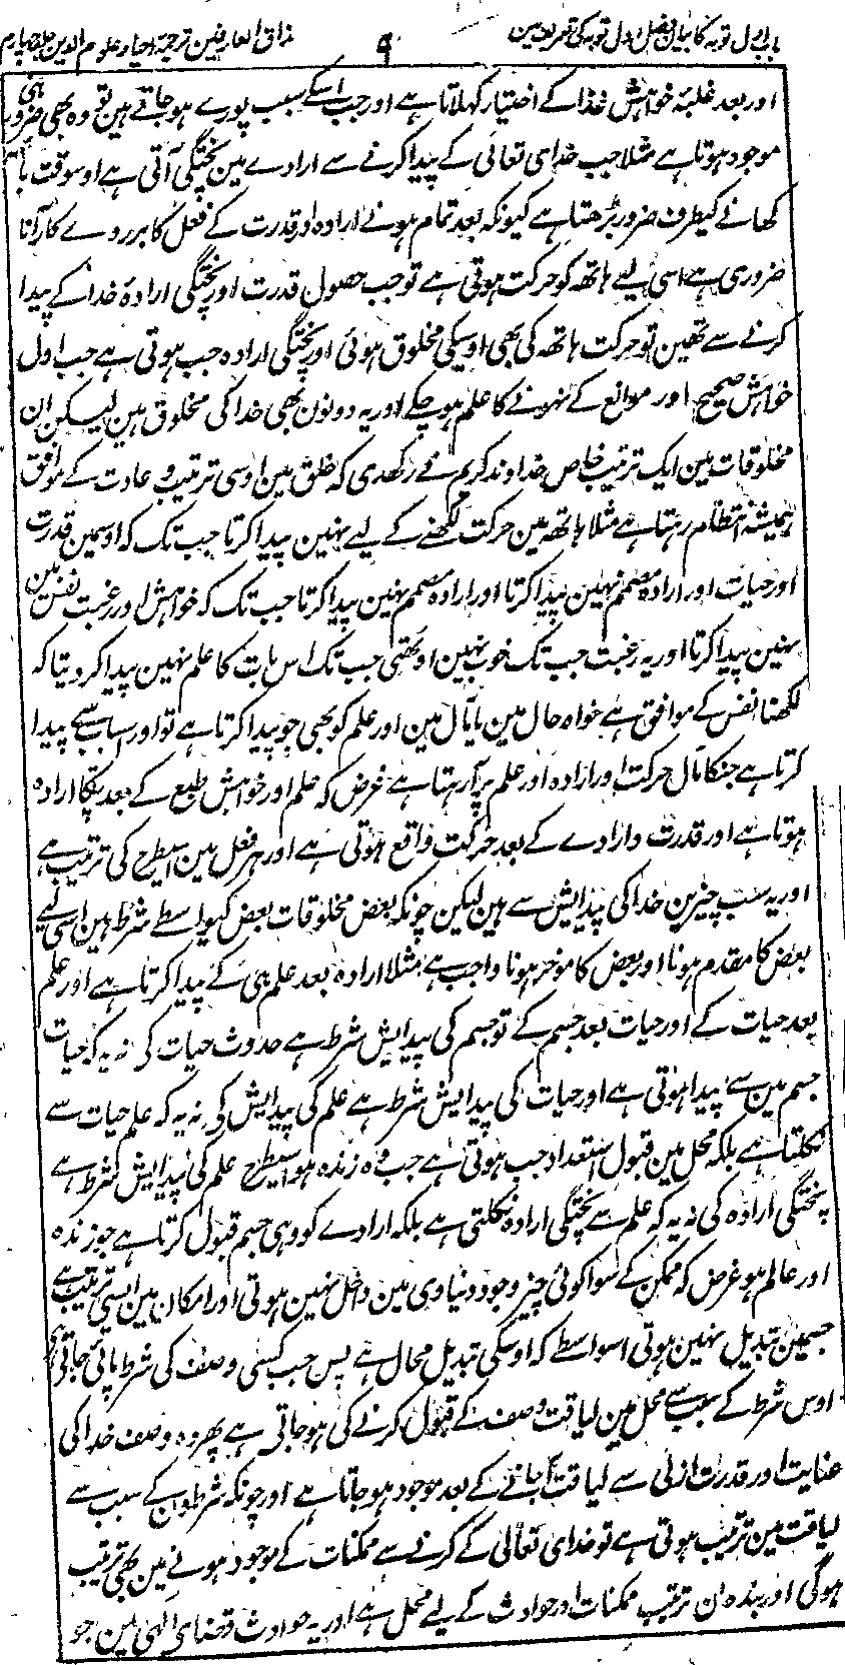 باب اول توبہ کا بیان فصل اول توبہ کی تعریف مین
۹
مذاق العارفین ترجمۂ احیاء علوم الدین جلد چہارم
اور بعد غلبۂ خواہش غذا کے اختیار کہلاتا ہے اور جب اسکے سبب پورے ہو جاتے ہین تو وہ بھی ضرور ہی
موجود ہوتا ہے مثلا جب خدای تعالی کے پیدا کرنے سے ارادے مین پختگی آتی ہے اوسوقت ہاتھ
کھانے کیطرف ضرور بڑھتا ہے کیونکہ بعد تمام ہونے ارادہ اور قدرت کے فعل کا برروے کار آنا
ضروری ہے اسی لیے ہاتھ کو حرکت ہوتی ہے تو جب حصول قدرت اور پختگی ارادہ خدا کے پیدا
کرنے سے تھین تو حرکت ہاتھ کی بھی اوسیکی مخلوق ہوئی اور پختگی ارادہ جب ہوتی ہے جب اول
خواہش صحیح اور موانع کے نہونے کا علم ہو چکے اور یہ دونون بھی خدا کی مخلوق ہین لیکن ان
مخلوقات مین ایک ترتیب خاص خداوند کریم نے رکھدی کہ خلق مین اوسی ترتیب و عادت کے موافق
ہمیشہ انتظام رہتا ہے مثلا ہاتھ مین حرکت لکھنے کے لیے نہین پیدا کرتا جب تک کہ اوسمین قدرت
اور حیات اور ارادہ مصمم نہین پیدا کرتا اور ارادہ مصمم نہین پیدا کرتا جب تک کہ خواہش اور رغبت نفس مین
نہین پیدا کرتا اور یہ رغبت جب تک خوب نہین اوبھتی جب تک اس بات کا علم نہین پیدا کر دیتا کہ
لکھنا نفس کے موافق ہے خواہ حال مین یا مآل مین اور علم کو بھی جو پیدا کرتا ہے تو اور اسباب سے پیدا
کرتا ہے جنکا مآل حرکت اور ارادہ اور علم پر آ رہتا ہے غرض کہ علم اور خواہش طبع کے بعد پکا ارادہ
ہوتا ہے اور قدرت و ارادے کے بعد حرکت واقع ہوتی ہے اور ہر فعل مین اسیطرح کی ترتیب ہے
اور یہ سب چیزین خدا کی پیدایش سے ہین لیکن چونکہ بعض مخلوقات بعض کیواسطے شرط ہین اسی لیے
بعض کا مقدم ہونا اور بعض کا موخر ہونا واجب ہے مثلا ارادہ بعد علم ہی کے پیدا کرتا ہے اور علم
بعد حیات کے اور حیات بعد جسم کے تو جسم کی پیدایش شرط ہے حدوث حیات کی نہ یہ کہ حیات
جسم مین سے پیدا ہوتی ہے اور حیات کی پیدایش شرط ہے علم کی پیدایش کی نہ یہ کہ علم حیات سے
نکلتا ہے بلکہ محل مین قبول استعداد جب ہوتی ہے جب وہ زندہ ہو اسیطرح علم کی پیدایش شرط ہے
پختگی ارادہ کی نہ یہ کہ علم سے پختگی ارادہ نکلتی ہے بلکہ ارادے کو وہی جسم قبول کرتا ہے جو زندہ
اور عالم ہو غرض کہ ممکن کے سوا کوئی چیز وجود دنیاوی مین داخل نہین ہوتی اور امکان مین ایسی ترتیب ہے
جسمین تبدیل نہین ہوتی اسواسطے کہ اوسکی تبدیل محال ہے پس جب کسی وصف کی شرط پائی جاتی ہے
اوس شرط کے سبب سے محل مین لیاقت وصف کے قبول کرنے کی ہو جاتی ہے پھر وہ وصف خدا کی
عنایت اور قدرت ازلی سے لیاقت آ جانے کے بعد موجود ہو جاتا ہے اور چونکہ شرطون کے سبب سے
لیاقت مین ترتیب ہوتی ہے تو خدای تعالی کے کرنے سے ممکنات کے موجود ہونے مین بھی ترتیب
ہوگی اور بندہ ان ترتیب ممکنات اور حوادث کے لیے محل ہے اور یہ حوادث قضای الہی مین جو